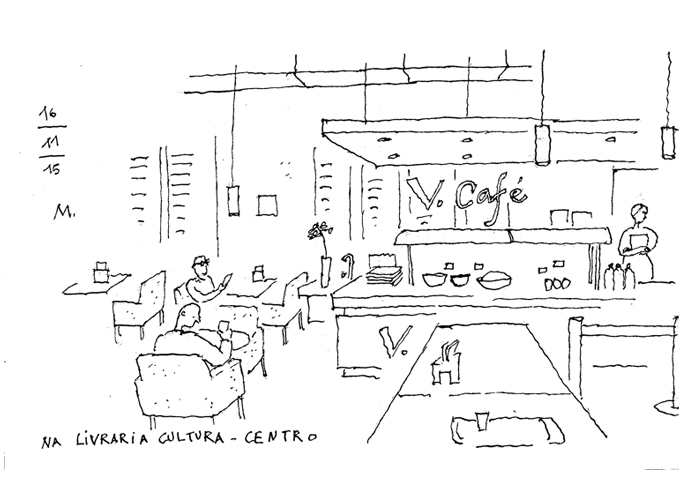 16
11
15
M.
V. Café
V.
NA LIVRARIA CULTURA - CENTRO